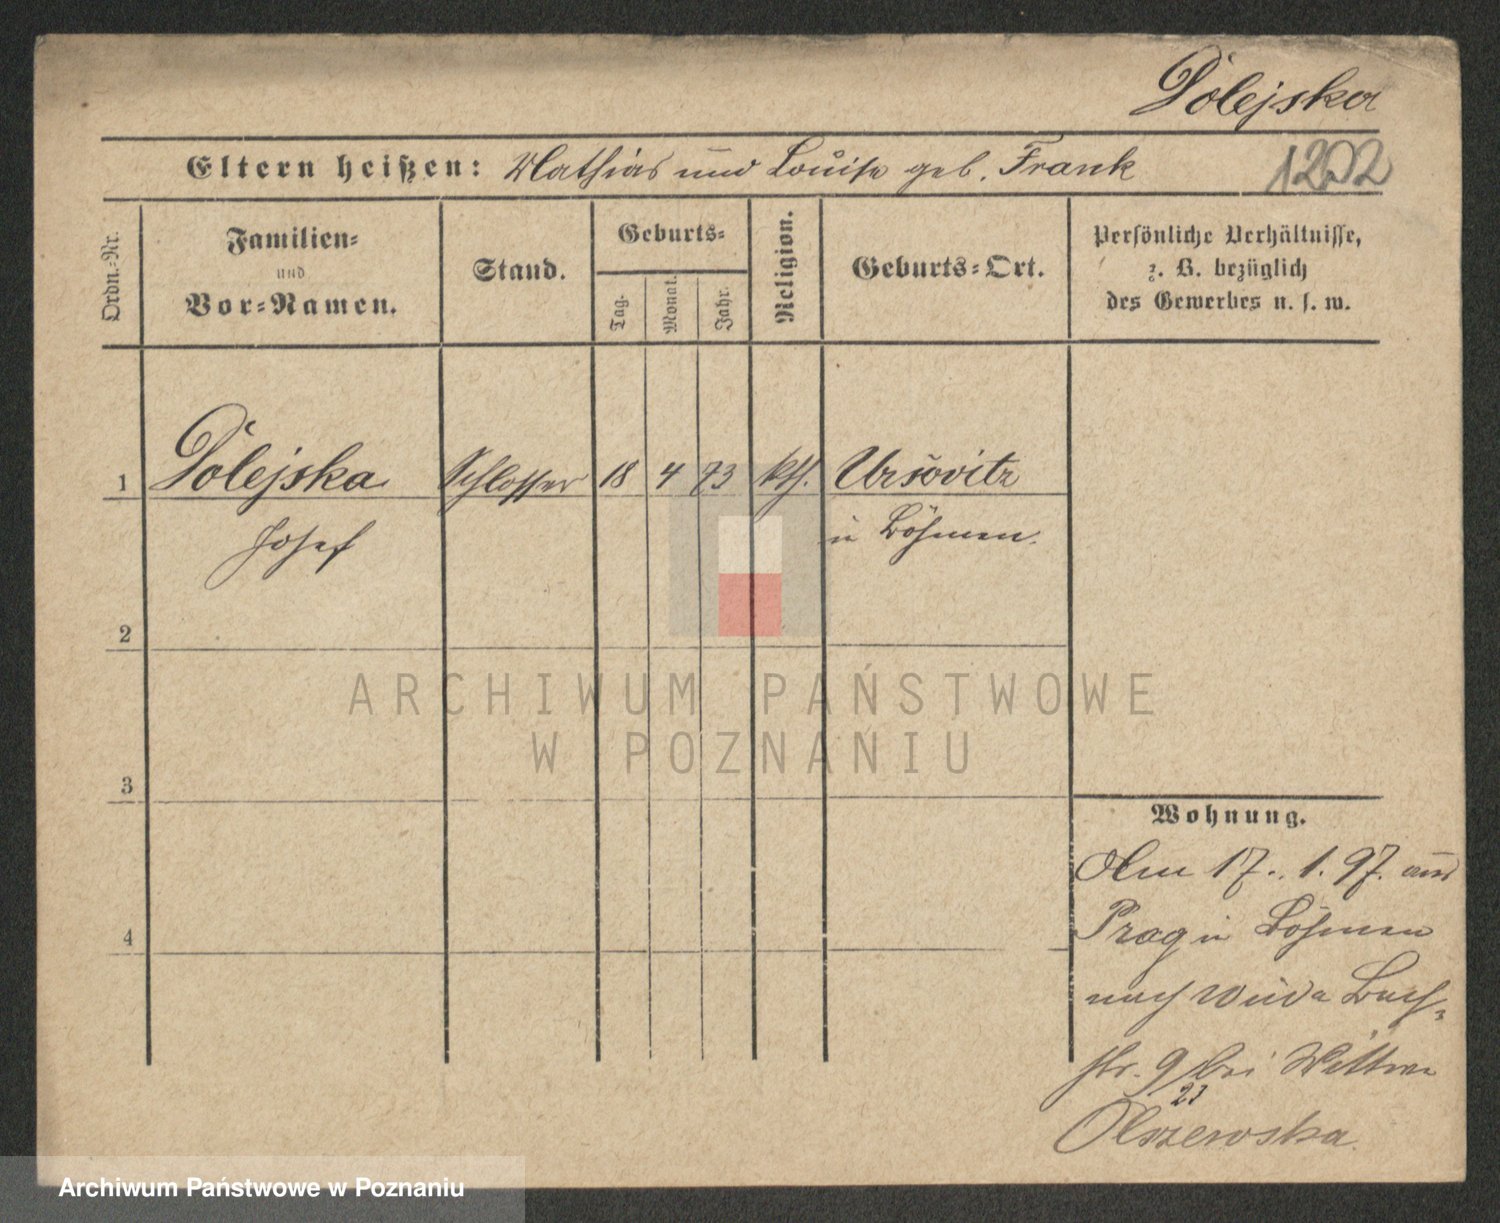 Polejska
Eltern heißen: Mathias und Louise geb. Frank 1202
Ordn.-Nr.
Familien-
und
Vor-Namen.
Stand.
Geburts-
Tag.
Monat.
Jahr.
Religion.
Geburts-Ort.
Persönliche Verhältnisse,
z. B. bezüglich
des Gewerbes u. s. w.
1 Polejska Schlosser 18 4 73 kth. Uršovitz
Josef i Böhmen.
2
3
4
Wohnung.
Am 17. 1. 97. aus
Prag i Böhmen
nach Wilda Bach-
str. 9 bei Wittwe
23
Olszewska
ARCHIWUM PAŃSTWOWE
W POZNANIU
Archiwum Państwowe w Poznaniu